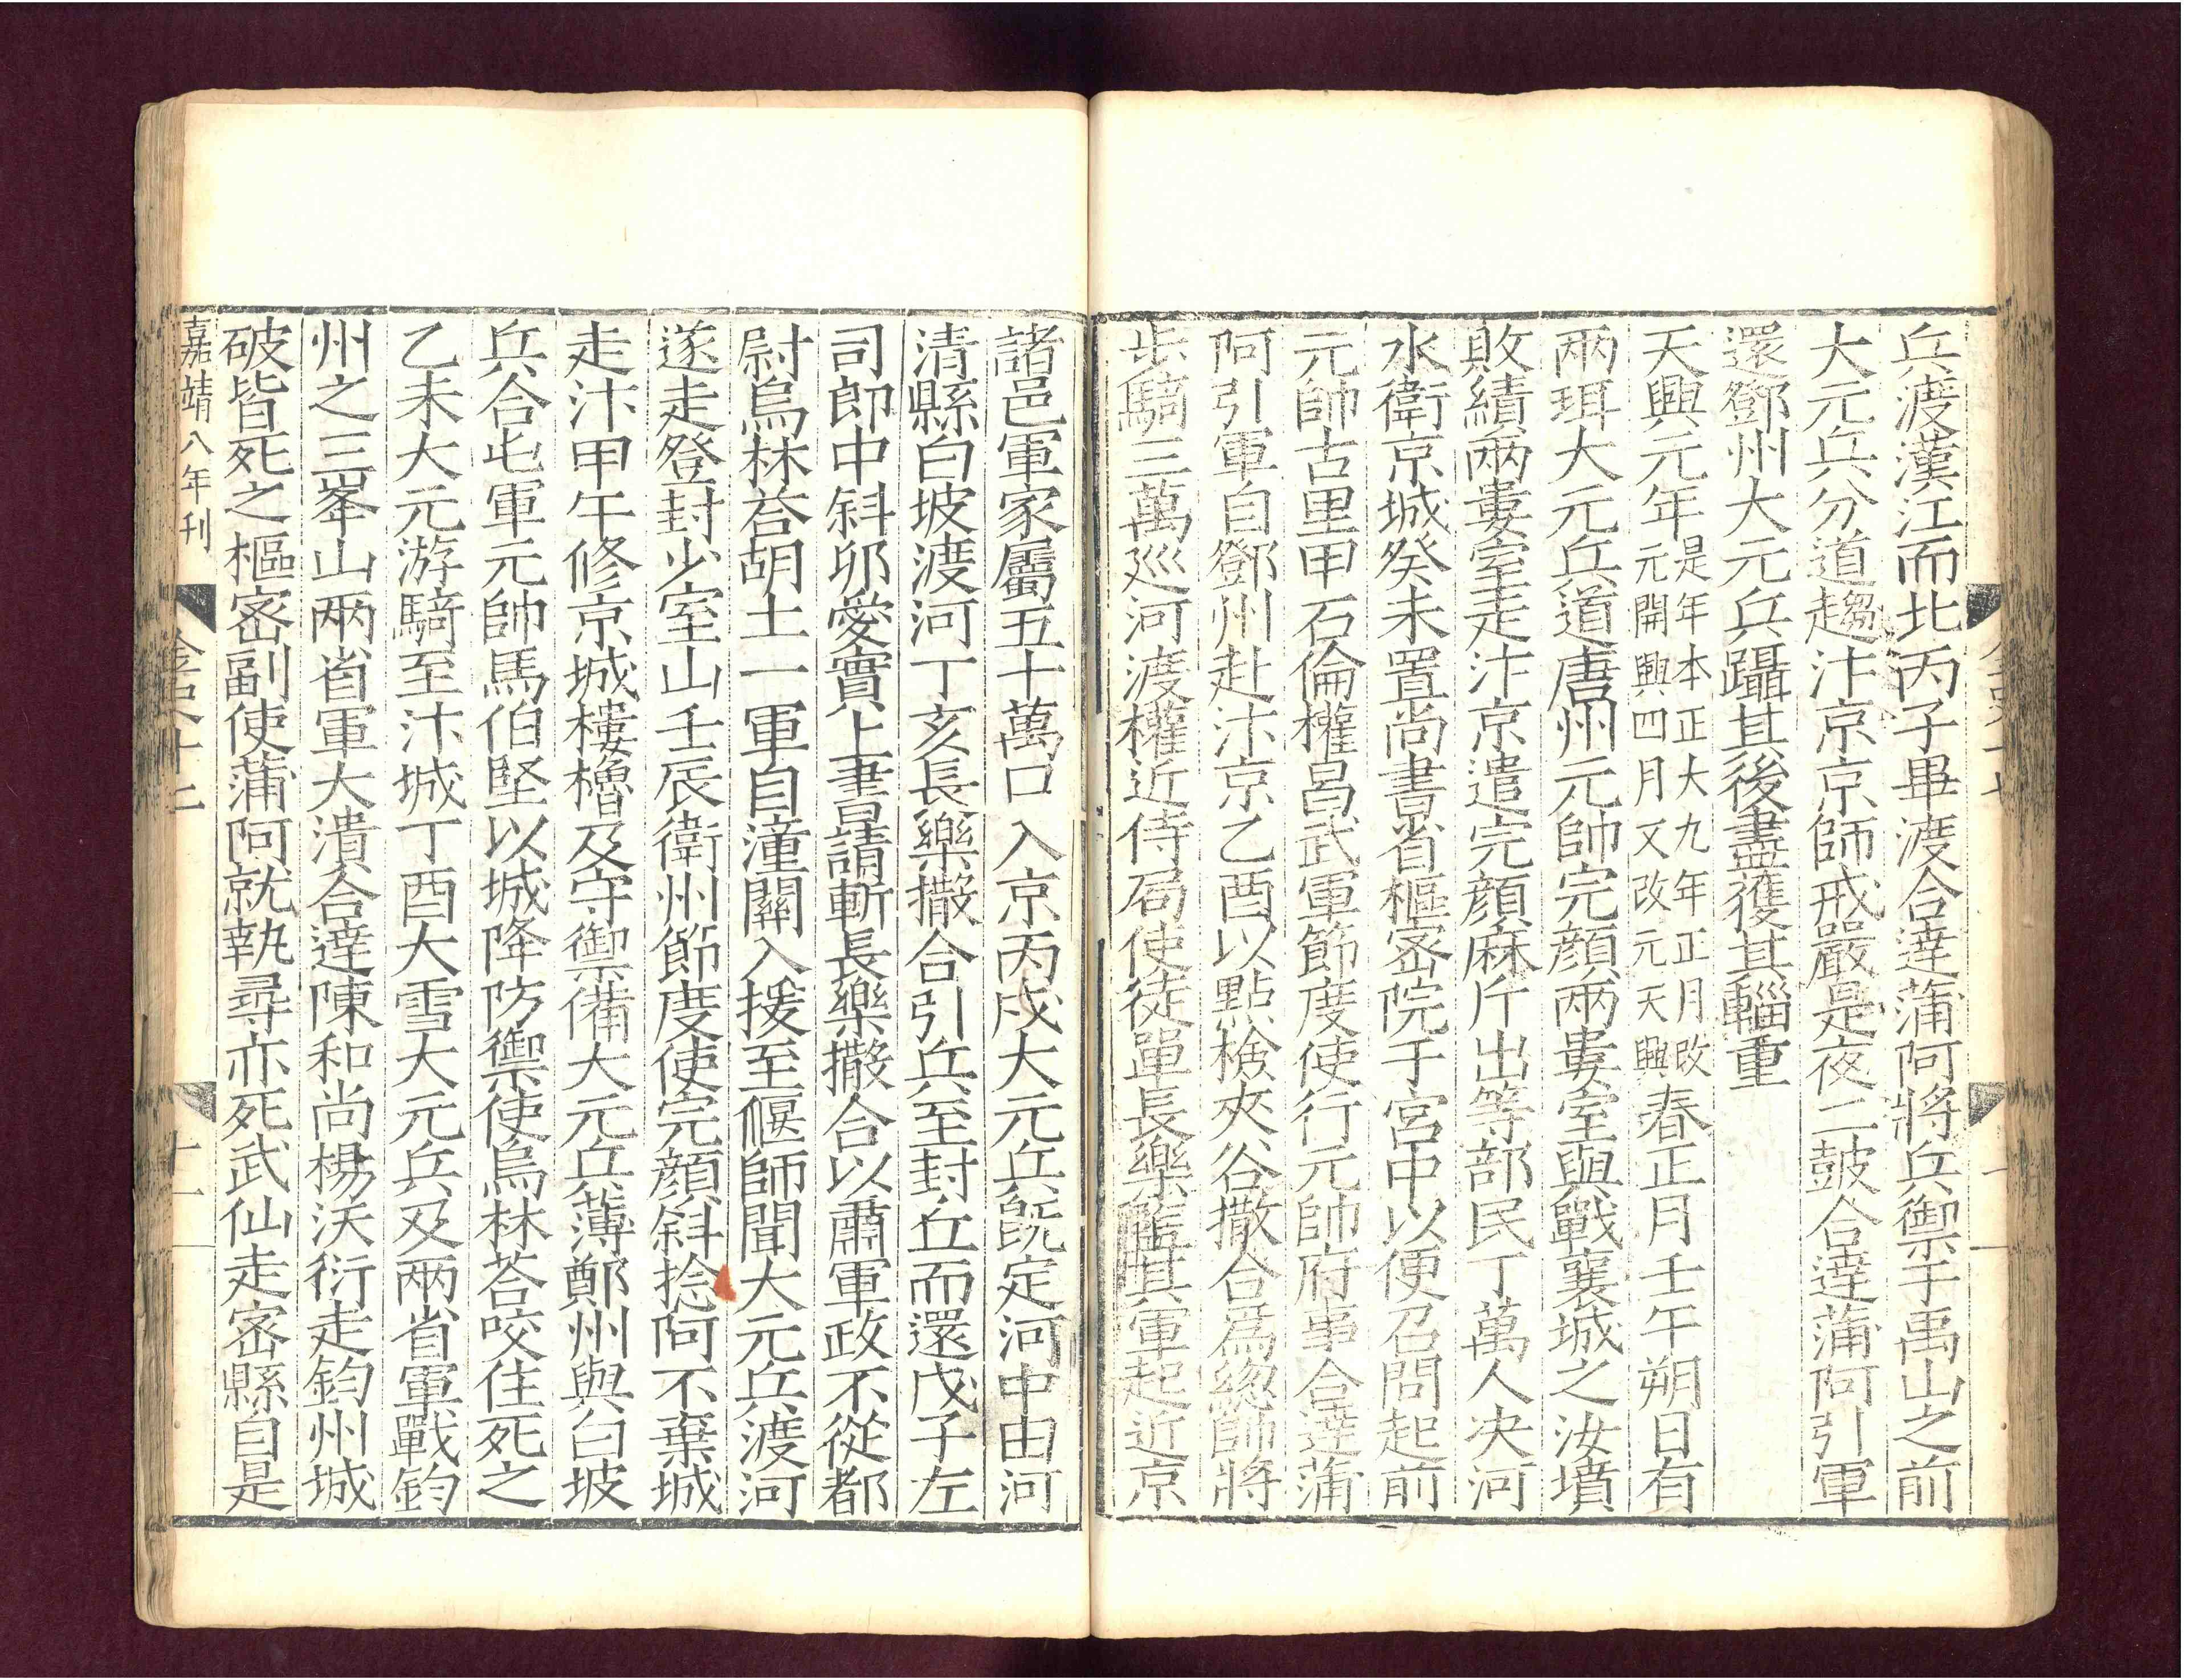 兵渡漢江而北丙子畢渡合達蒲阿將兵禦于禹山之前
大元兵分道趨汴京京師戒嚴是夜二鼓合達蒲阿引軍
還鄧州大元兵躡其後盡獲其輜重
天興元年是年本正大九年正月改元開興四月又改元天興春正月壬午朔日有
兩珥大元兵道唐州元帥完顔兩婁室與戰襄城之汝墳
敗績兩婁室走汴京遣完顔麻斤出等部民丁萬人决河
水衛京城癸未置尚書省樞宻院于宮中以便召問起前
元帥古里甲石倫權昌武軍節度使行元帥府事合達蒲
阿引軍自鄧州赴汴京乙酉以點檢夾谷撒合爲緫帥將
步騎三萬巡河渡權近侍局使徒單長樂監其軍起近京
諸邑軍家屬五十萬口入京丙戌大元兵旣定河中由河
清縣白坡渡河丁亥長樂撒合引兵至封丘而還戊子左
司郎中斜卯愛實上書請斬長樂撒合以肅軍政不從都
尉烏林荅胡土一軍自潼關入援至偃師聞大元兵渡河
遂走登封少室山壬辰衛州節度使完顔斜捻阿不棄城
走汴甲午修京城樓櫓及守禦備大元兵薄鄭州與白坡
兵合屯軍元帥馬伯堅以城降防禦使烏林荅咬住死之
乙未大元游騎至汴城丁酉大雪大元兵及兩省軍戰鈞
州之三峯山兩省軍大潰合達陳和尚楊沃衍走鈞州城
破皆死之樞宻副使蒲阿就執尋亦死武仙走宻縣自是
嘉靖八年刊
十一